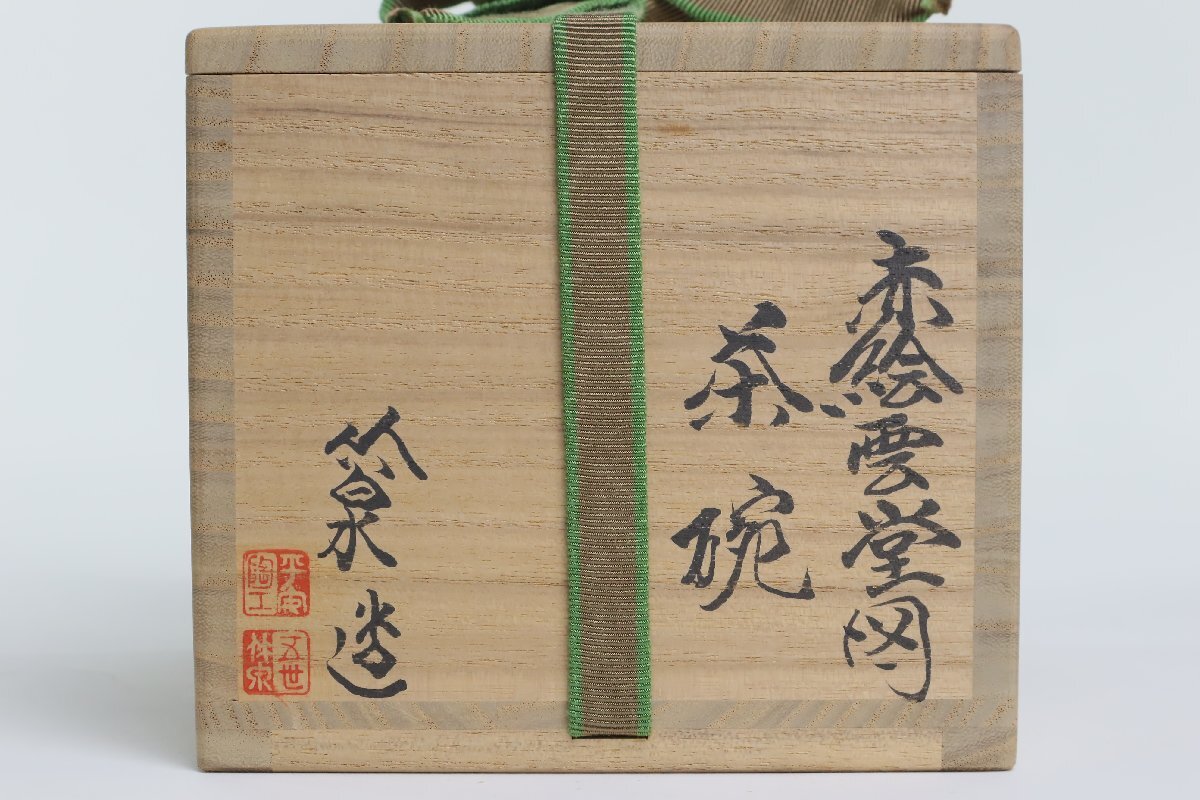 赤絵雲堂図
茶碗
竹泉造
平安陶工
五世竹泉